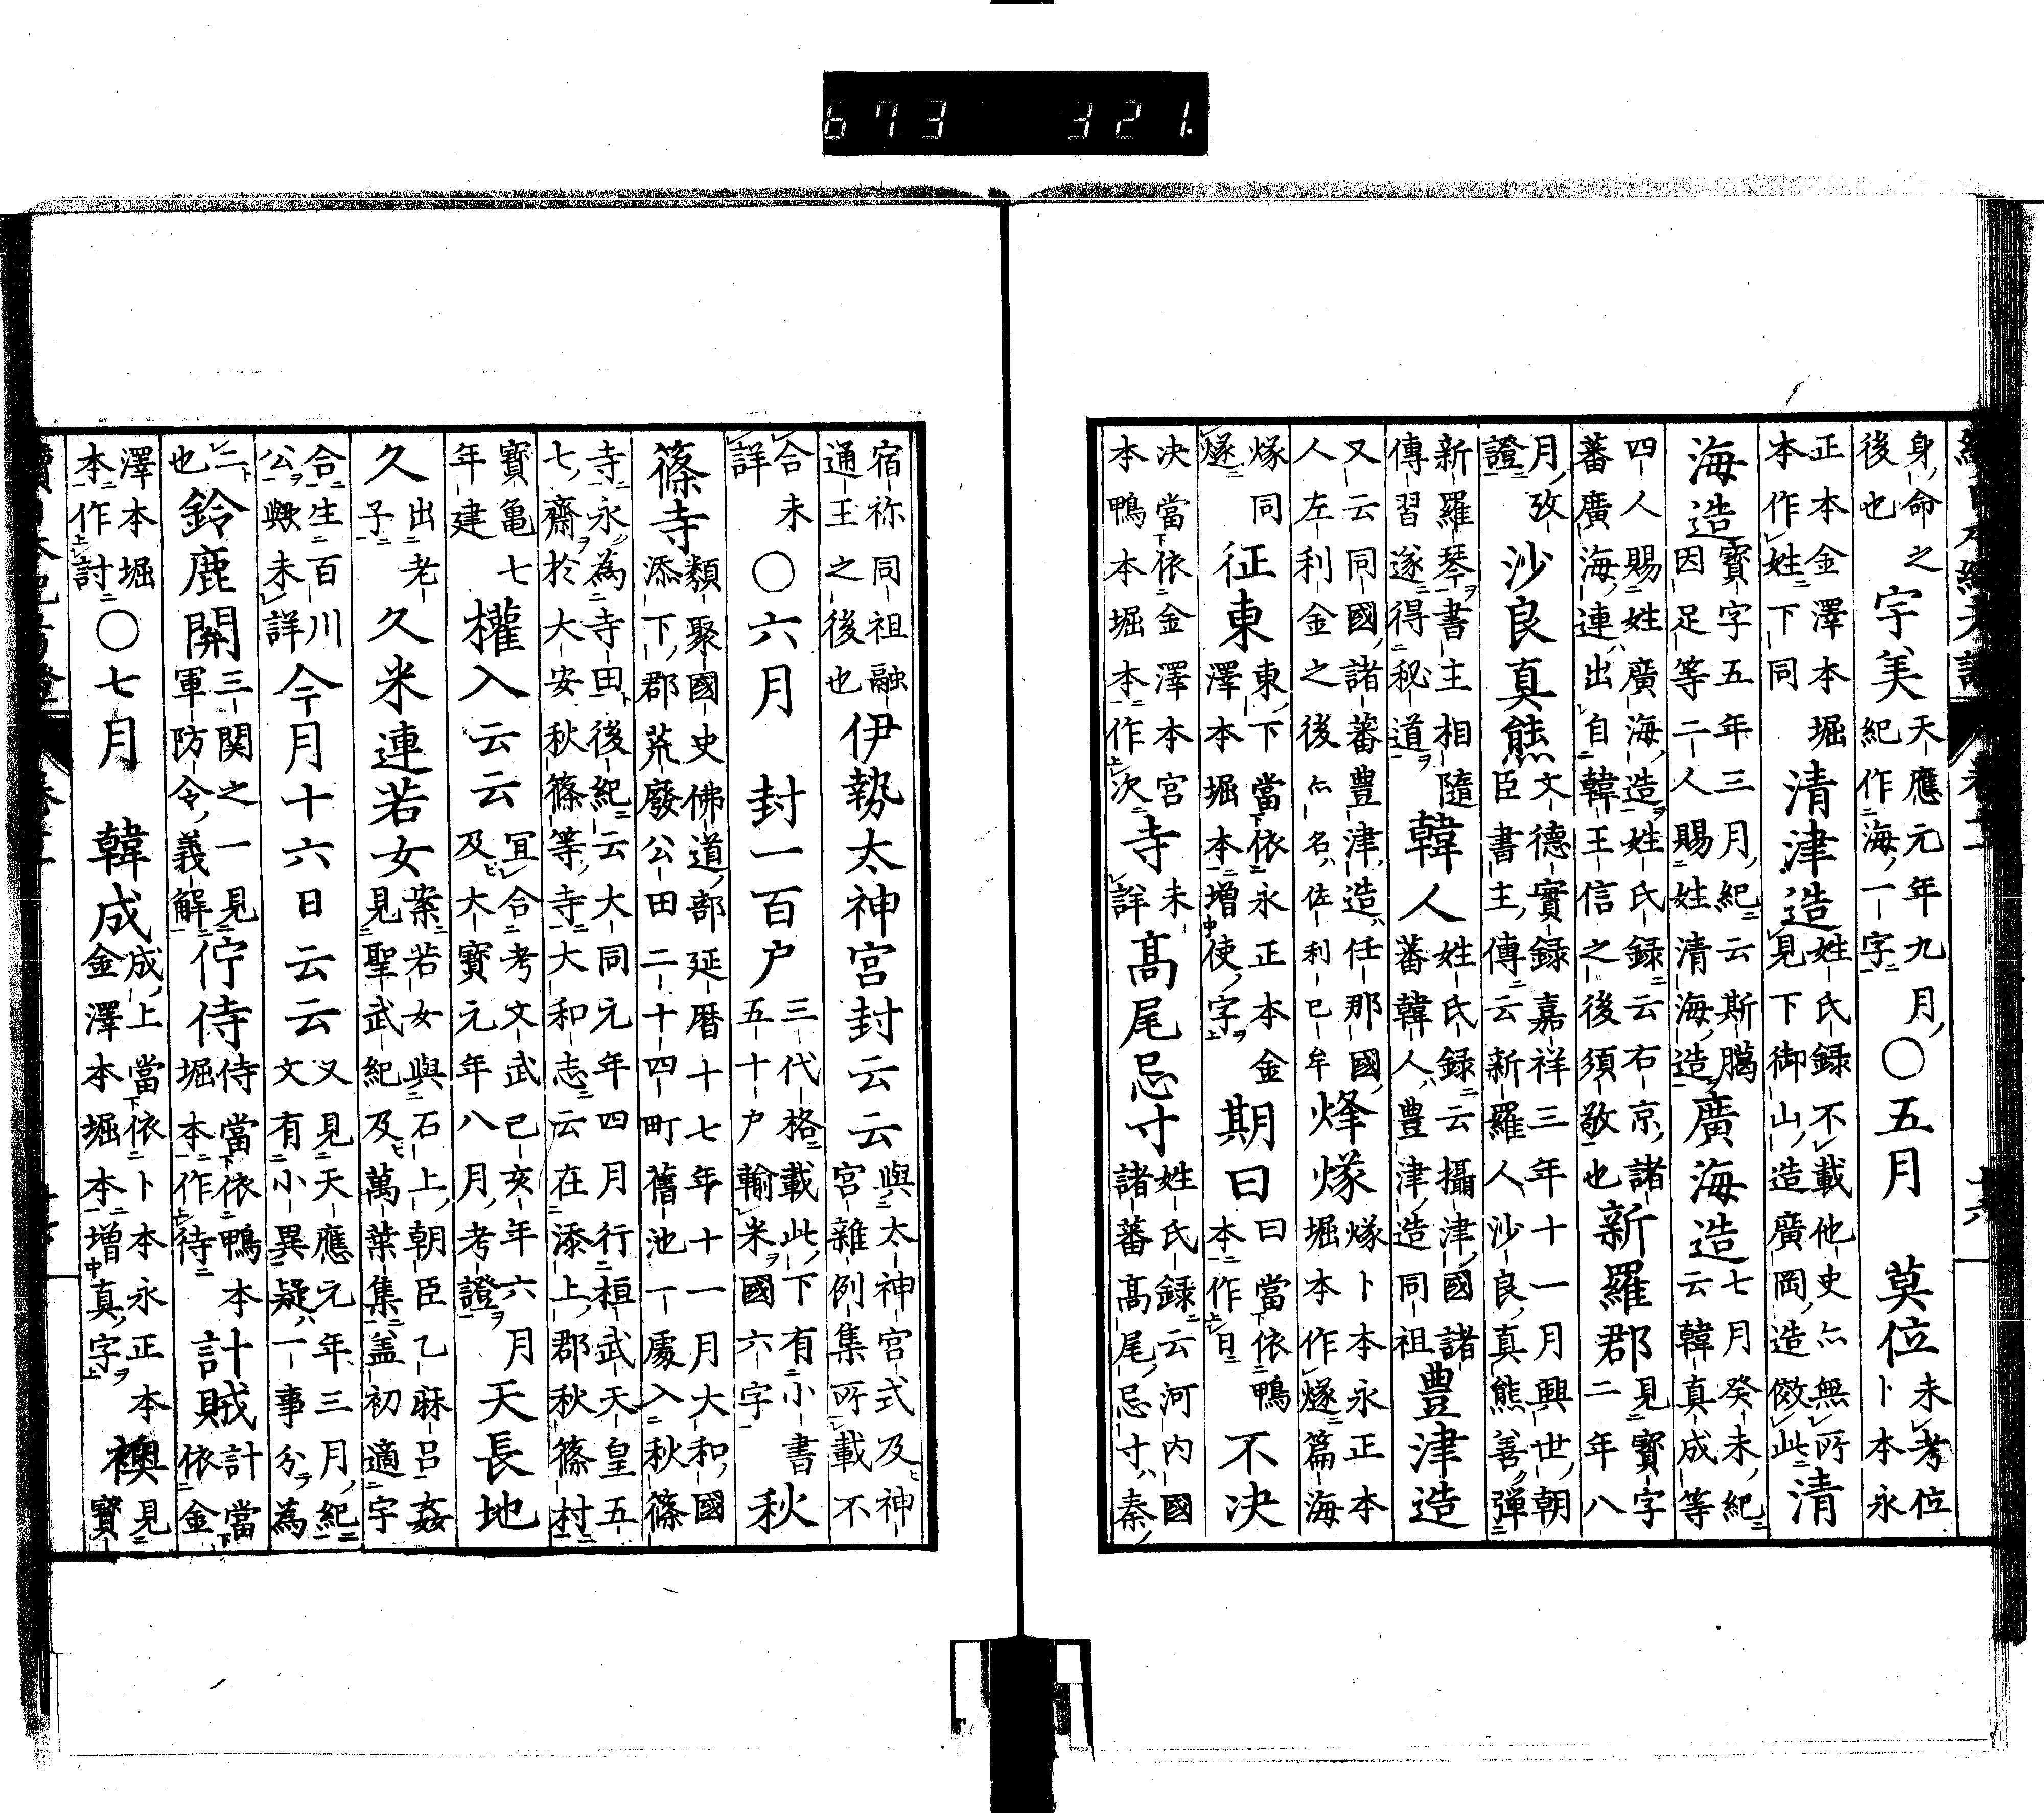 673 321.
身命之
後也
宇美
天應元年九月
紀作海一字
○五月
莫位
未考位
卜本永
正本金澤本堀
本作姓下同
清津造
姓氏録不載他史亦無所
見下御山造廣岡造倣此
清
海造
寳字五年三月紀云斯﨟
因足等二人賜姓清海造
廣海造
七月癸未紀
云韓真成等
四人賜姓廣海造姓氏録云右京諸
蕃廣海連出自韓王信之後須敬也
新羅郡
見寳字
二年八
月攷
證
沙良真熊
文德實録嘉祥三年十一月興世朝
臣書主傳云新羅人沙良真熊善彈
新羅琴書主相隨
傳習遂得秘道
韓人
姓氏録云攝津國諸
蕃韓人豊津造同祖
豊津造
又云同國諸蕃豊津造任那國
人左利金之後亦名佐利己牟
烽燧
燧卜本永正本
堀本作㸂篇海
燧同
㸂
征東
東下當依永正本金
澤本堀本増使字
期曰
曰當依鴨
本作日
不决
决當依金澤本宮
本鴨本堀本作次
寺
未
詳
髙尾忌寸
姓氏録云河内國
諸蕃髙尾忌寸秦
宿祢同祖融
通王之後也
伊勢太神宮封云云
與太神宮式及神
宮雑例集所載不
合未
詳
○六月
封一百户
三代格載此下有小書
五十户輸米國六字
秋
篠寺
類聚國史佛道部延曆十七年十一月大和國
添下郡荒廢公田二十四町舊池一處入秋篠
寺永為寺田後紀云大同元年四月行桓武天皇五
七齋於大安秋篠等寺大和志云在添上郡秋篠村
寳亀七
年建
權入云云
冝合考文武己亥年六月
及大寳元年八月考證
天長地
久
出老
子
久米連若女
案若女與石上朝臣乙麻呂姦
見聖武紀及萬葉集盖初適宇
合生百川
公歟未詳
今月十六日云云
又見天應元年三月紀
文有小異疑一事分為
二
也
鈴鹿關
三関之一見
軍防令義解
佇侍
侍當依鴨本
堀本作待
計賊
計當
依金
澤本堀
本作討
○七月
韓成
成上當依卜本永正本
金澤本堀本増真字
襖
見
寳